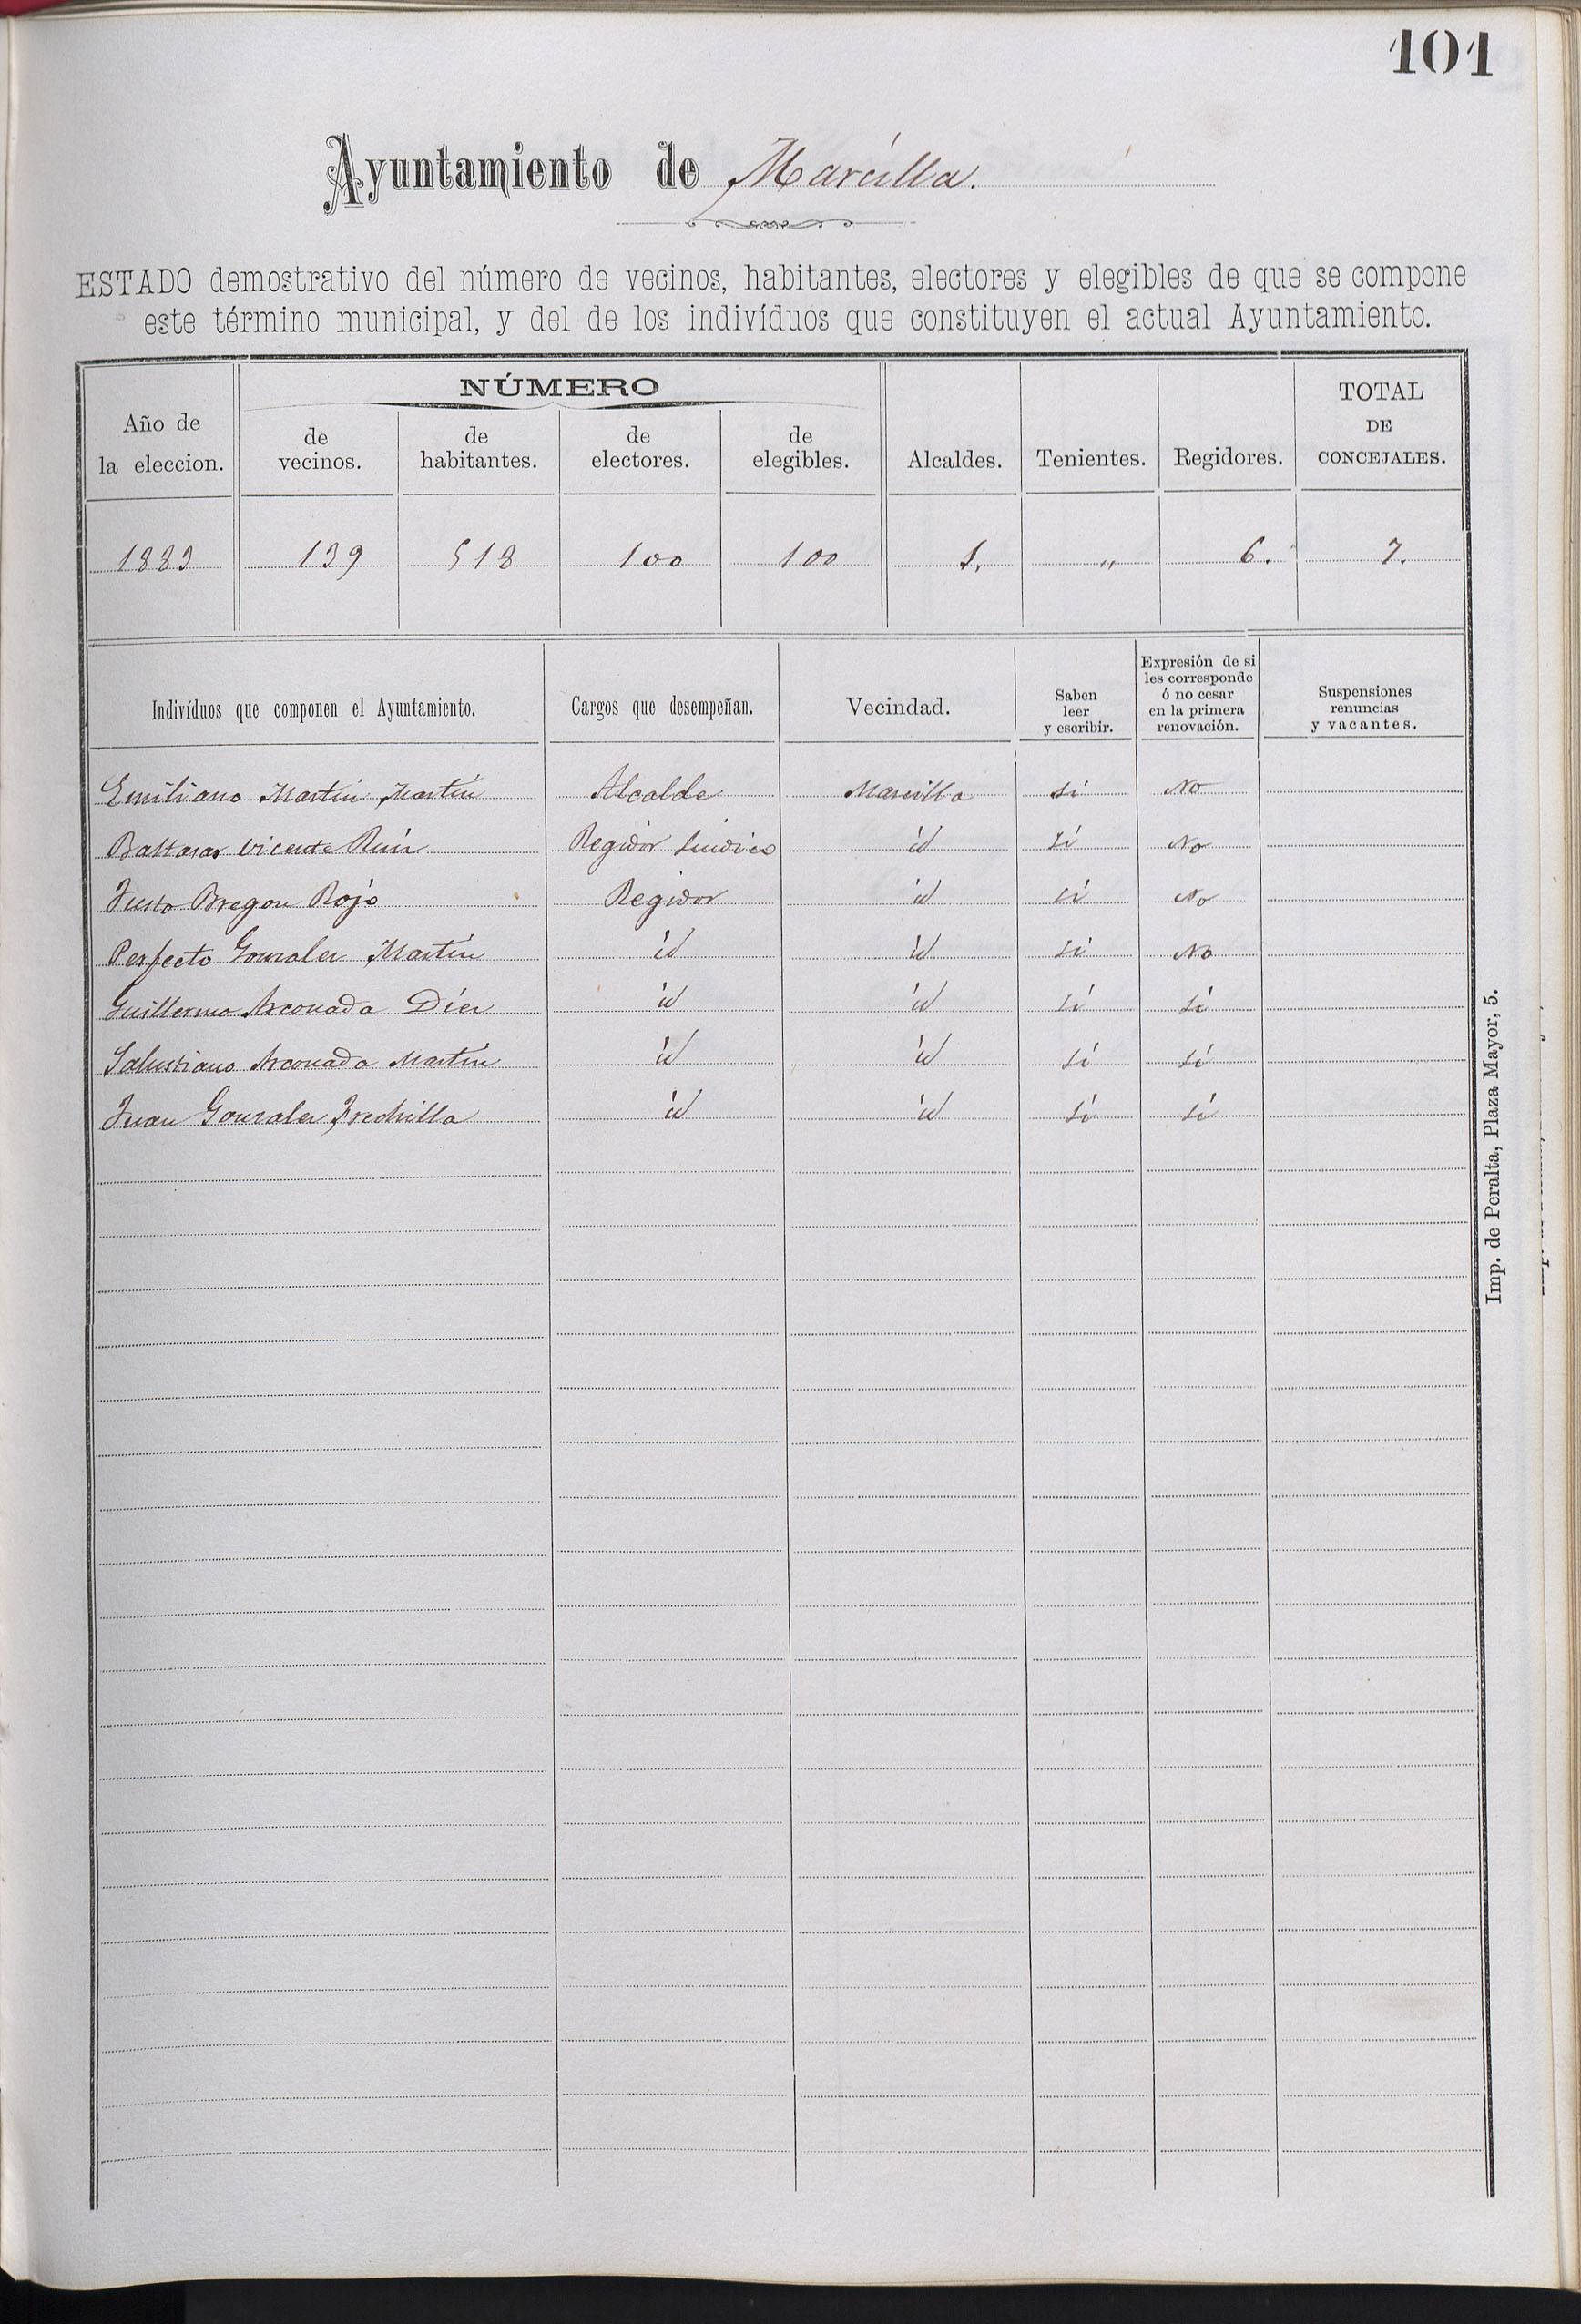 101
Ayuntamiento de Marcilla.
ESTADO demostrativo del número de vecinos, habitantes, electores y elegibles de que se compone
este término municipal, y del de los indivíduos que constituyen el actual Ayuntamiento.
Año de la eleccion. NÚMERO de vecinos. de habitantes. de electores. de elegibles. Alcaldes. Tenientes. Regidores. TOTAL DE CONCEJALES.
1883 139 518 100 100 1. " 6. 7.
Indivíduos que componen el Ayuntamiento. Cargos que desempeñan. Vecindad. Saben leer y escribir. Expresión de si les corresponde ó no cesar en la primera renovación. Suspensiones renuncias y vacantes.
Emiliano Martin Martín Alcalde Marcilla Si No
Baltasar Vicente Ruiz Regidor Sindico id Si No
Justo Bregon Rojo Regidor id Si No
Perfecto Gonzalez Martín id id Si No
Guillermo Arconada Diez id id Sí Sí
Salustiano Arconada Martín id id Sí Sí
Juan Gonzalez Frechilla id id Sí Sí
Imp. de Peralta, Plaza Mayor, 5.